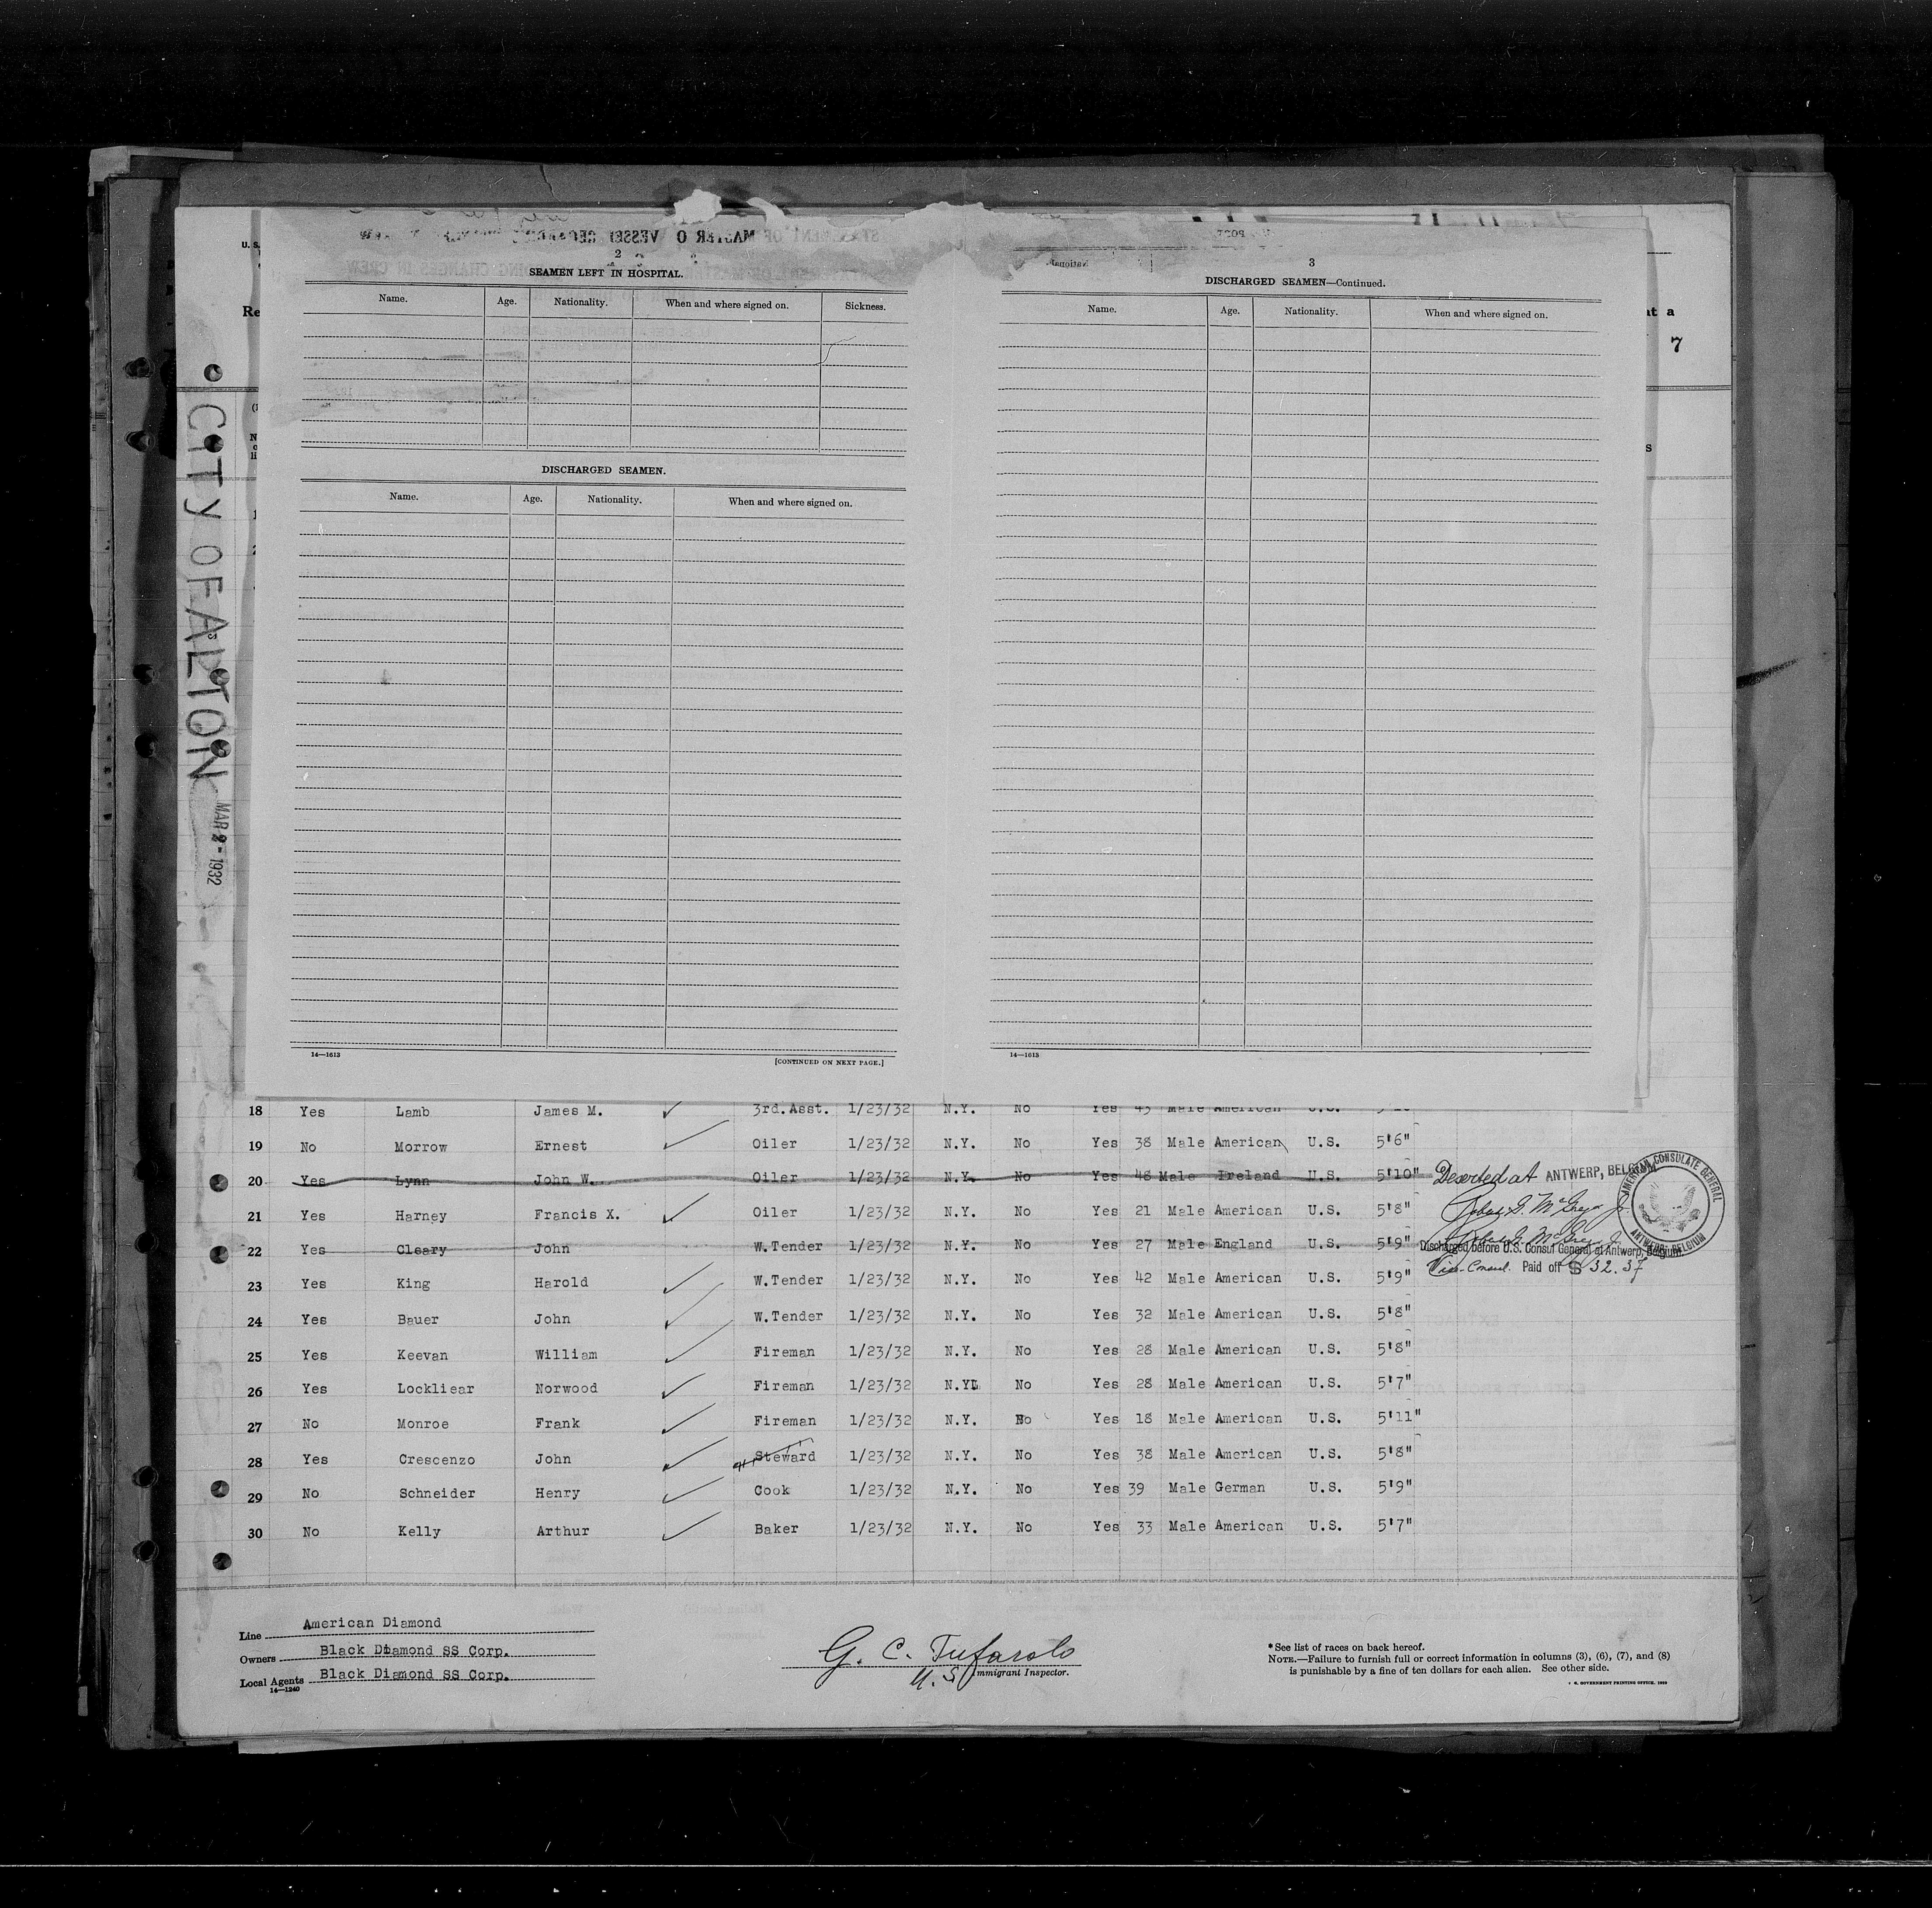 CITY OF ALTON
MAR 2 - 1932
U. S.
Re
at a
7
s
2
SEAMEN LEFT IN HOSPITAL.
Name. Age. Nationality. When and where signed on. Sickness.
DISCHARGED SEAMEN.
Name. Age. Nationality. When and where signed on.
14—1613 [CONTINUED ON NEXT PAGE.]
3
DISCHARGED SEAMEN—Continued.
Name. Age. Nationality. When and where signed on.
14—1613
18 Yes Lamb James M. 3rd.Asst. 1/23/32 N.Y. No Yes 45 Male American U.S.
19 No Morrow Ernest Oiler 1/23/32 N.Y. No Yes 38 Male American U.S. 5'6"
20 Yes Lynn John W. Oiler 1/23/32 N.Y. No Yes 48 Male Ireland U.S. 5'10" Deserted at ANTWERP, BELGIUM
21 Yes Harney Francis X. Oiler 1/23/32 N.Y. No Yes 21 Male American U.S. 5'8"
22 Yes Cleary John W.Tender 1/23/32 N.Y. No Yes 27 Male England U.S. 5'9" Discharged before U.S. Consul General at Antwerp, Belgium
Vice-Consul. Paid off $ 32.37
AMERICAN CONSULATE GENERAL
ANTWERP, BELGIUM
23 Yes King Harold W.Tender 1/23/32 N.Y. No Yes 42 Male American U.S. 5'9"
24 Yes Bauer John W.Tender 1/23/32 N.Y. No Yes 32 Male American U.S. 5'8"
25 Yes Keevan William Fireman 1/23/32 N.Y. No Yes 28 Male American U.S. 5'8"
26 Yes Lockliear Norwood Fireman 1/23/32 N.Y. No Yes 28 Male American U.S. 5'7"
27 No Monroe Frank Fireman 1/23/32 N.Y. No Yes 18 Male American U.S. 5'11"
28 Yes Crescenzo John Steward 1/23/32 N.Y. No Yes 38 Male American U.S. 5'8"
29 No Schneider Henry Cook 1/23/32 N.Y. No Yes 39 Male German U.S. 5'9"
30 No Kelly Arthur Baker 1/23/32 N.Y. No Yes 33 Male American U.S. 5'7"
Line American Diamond
Owners Black Diamond SS Corp.
Local Agents Black Diamond SS Corp.
14—1240
G. C. Tufarolo
U.S. Immigrant Inspector.
* See list of races on back hereof.
NOTE.—Failure to furnish full or correct information in columns (3), (6), (7), and (8)
is punishable by a fine of ten dollars for each alien. See other side.
GOVERNMENT PRINTING OFFICE